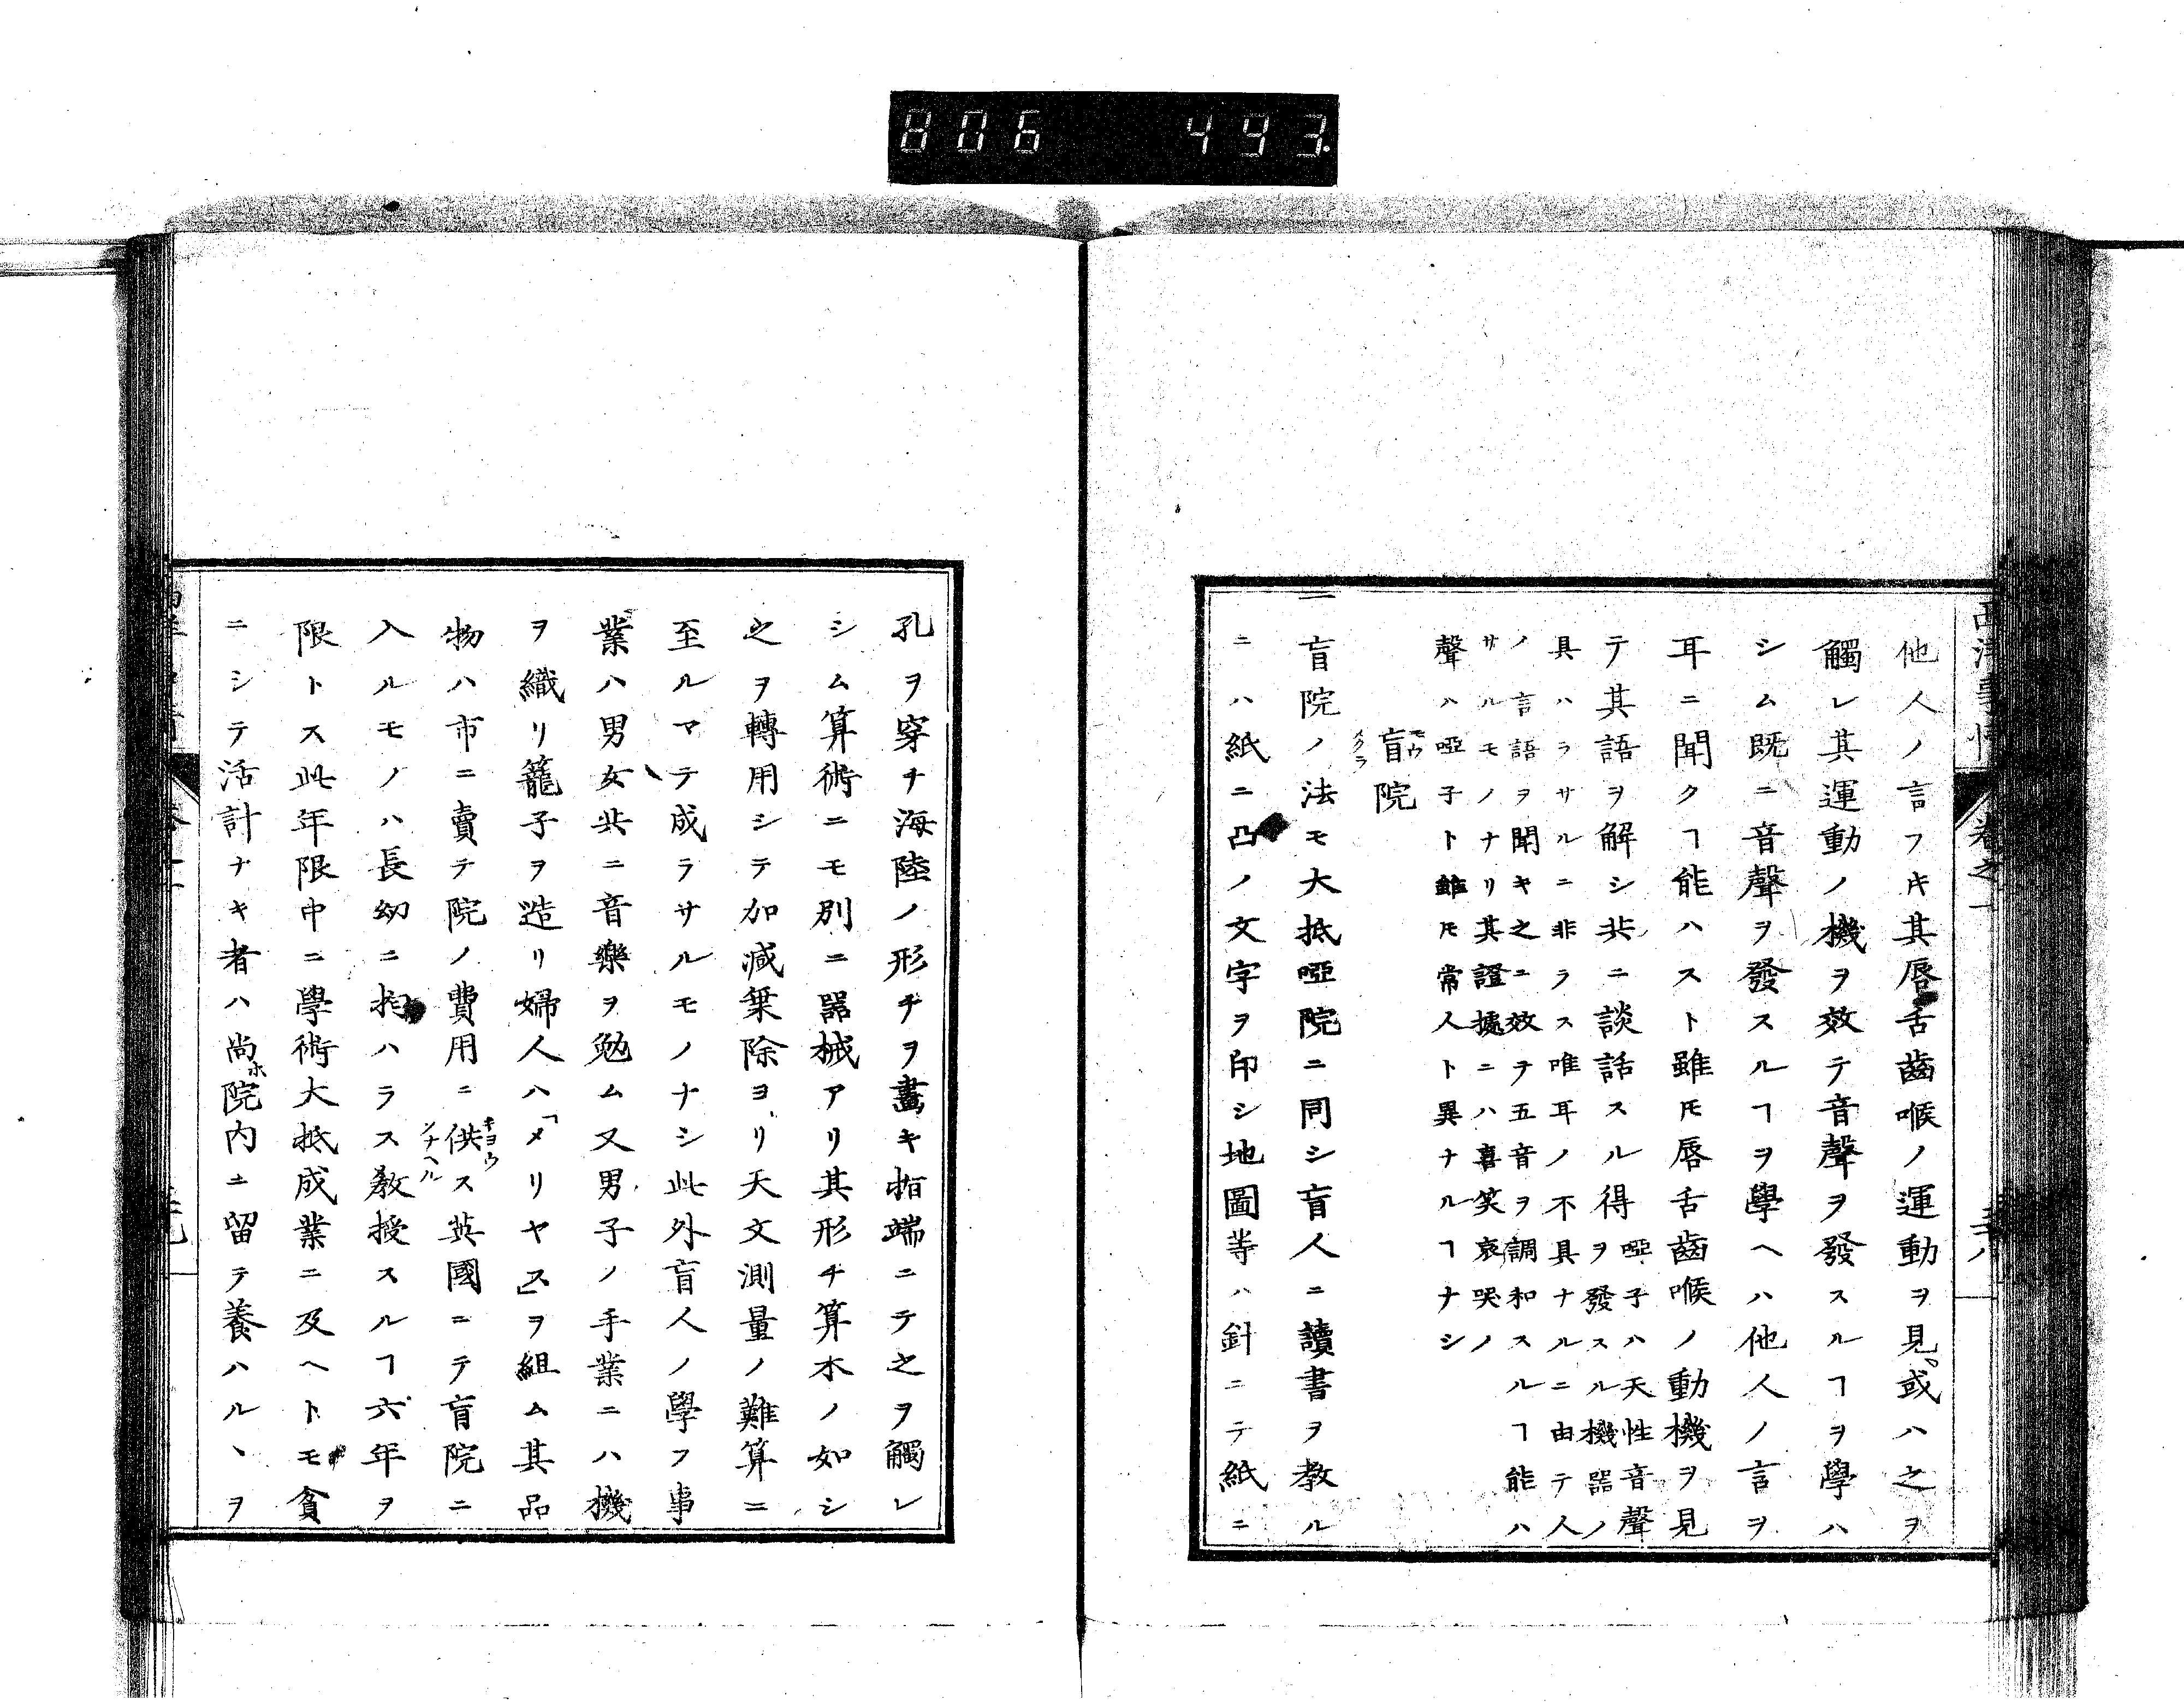 806 493.
西洋事情 卷之一
他人ノ言フキ其唇舌齒喉ノ運動ヲ見或ハ之ヲ
觸レ其運動ノ機ヲ效テ音聲ヲ發スルヿヲ學ハ
シム既ニ音聲ヲ發スルヿヲ學ヘハ他人ノ言ヲ
耳ニ聞クヿ能ハスト雖𪜈唇舌齒喉ノ動機ヲ見
テ其語ヲ解シ共ニ談話スル得
啞子ハ天性音聲
ヲ發スル機器ノ
具ハラサルニ非ラス唯耳ノ不具ナルニ由テ人
ノ言語ヲ聞キ之ニ效ヲ五音ヲ調和スルヿ能ハ
サルモノナリ其證據ニハ喜笑哀哭ノ
聲ハ啞子ト雖𪜈常人ト異ナルヿナシ
盲院
モウ
メクラ
一盲院ノ法モ大抵啞院ニ同シ盲人ニ讀書ヲ教ル
ニハ紙ニ凸ノ文字ヲ印シ地圖等ハ針ニテ紙ニ
孔ヲ穿チ海陸ノ形チヲ畫キ指端ニテ之ヲ觸レ
シム算術ニモ別ニ器械アリ其形チ算木ノ如シ
之ヲ轉用シテ加減乗除ヨリ天文測量ノ難算ニ
至ルマテ成ラサルモノナシ此外盲人ノ學フ事
業ハ男女共ニ音樂ヲ勉ム又男子ノ手業ニハ機
ヲ織リ籠子ヲ造リ婦人ハ「メリヤス」ヲ組ム其品
物ハ市ニ賣テ院ノ費用ニ供ス英國ニテ盲院ニ
キヨウ
ソナヘル
入ルモノハ長幼ニ拘ハラス教授スルヿ六年ヲ
限トス此年限中ニ學術大抵成業ニ及ヘトモ貧
ニシテ活計ナキ者ハ尚ホ院内ニ留テ養ハルヽヲ